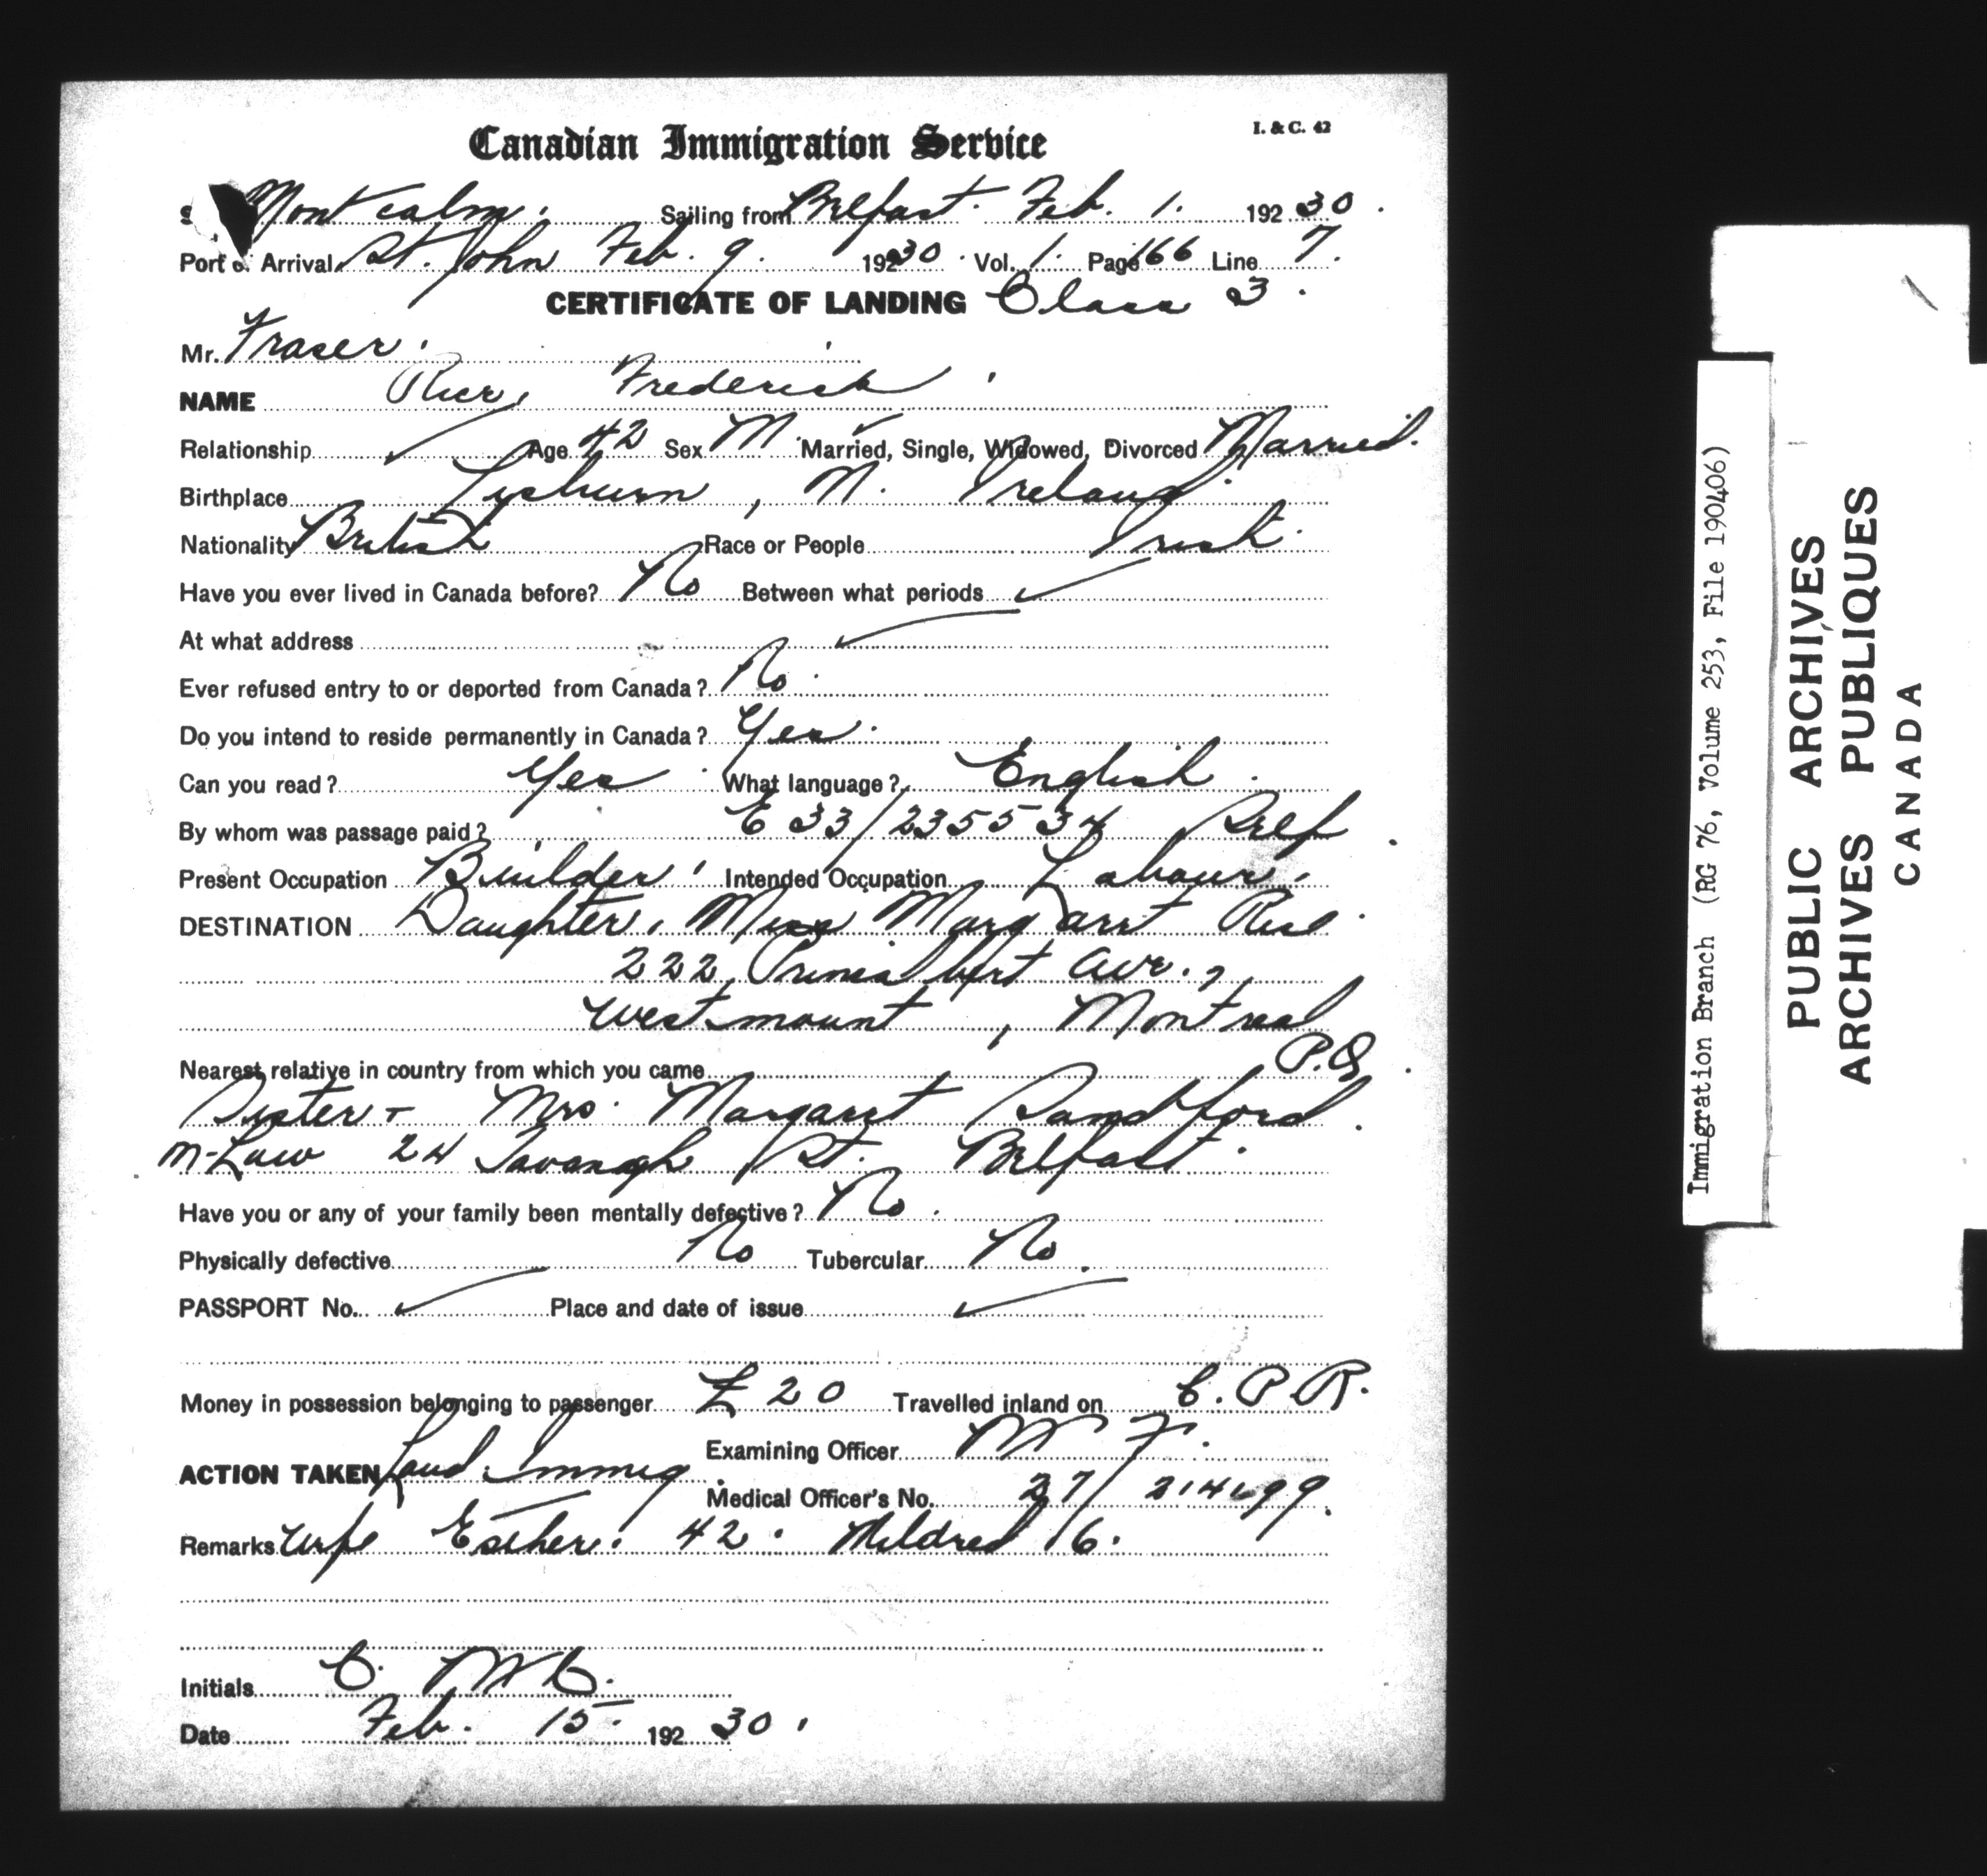 Canadian Immigration Service
I. & C. 42
S Montcalm. Sailing from Belfast. Feb. 1. 192 30.
Port of Arrival St. John Feb. 9. 192 30. Vol. 1. Page 166 Line 7.
CERTIFICATE OF LANDING Class 3.
Mr. Fraser.
NAME Rice, Frederick
Relationship Age 42 Sex M. Married, Single, Widowed, Divorced Married.
Birthplace Lisburn, N. Ireland.
Nationality British Race or People Irish.
Have you ever lived in Canada before? No Between what periods
At what address
Ever refused entry to or deported from Canada? No.
Do you intend to reside permanently in Canada? Yes.
Can you read? Yes. What language? English.
By whom was passage paid? E 33/235534 Self.
Present Occupation Builder Intended Occupation Labour.
DESTINATION Daughter, Miss Margaret Rice.
222, Prince Albert Ave.,
Westmount, Montreal
P.Q.
Nearest relative in country from which you came
Sister - Mrs. Margaret Sandford.
in-Law 24 St. Belfast.
Have you or any of your family been mentally defective? No.
Physically defective No Tubercular No.
PASSPORT No. Place and date of issue
Money in possession belonging to passenger £20 Travelled inland on C.P.R.
Examining Officer
ACTION TAKEN Land. Immig.
Medical Officer's No.
Remarks Wife Esther. 42. Mildred 16.
Initials
Date Feb. 15. 192 30.
Immigration Branch (RG 76, Volume 253, File 190406)
PUBLIC ARCHIVES
ARCHIVES PUBLIQUES
CANADA